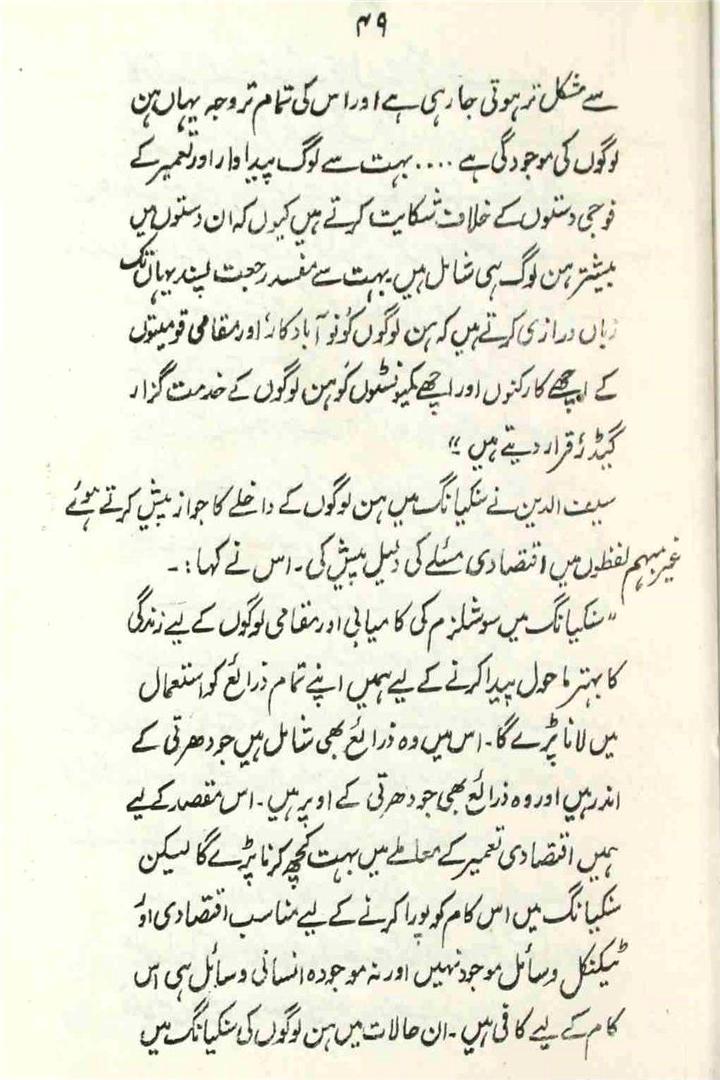 ۴۹
سے مشکل تر ہوتی جا رہی ہے اور اس کی تمام تر وجہ یہاں ہن
لوگوں کی موجودگی ہے .... بہت سے لوگ پیداوار اور تعمیر کے
فوجی دستوں کے خلاف شکایت کرتے ہیں کیوں کہ ان دستوں میں
بیشتر ہن لوگ ہی شامل ہیں۔ بہت سے مفسد رجعت پسند یہاں تک
زباں درازی کرتے ہیں کہ ہن لوگوں کو نو آبادکار، اور مقامی قومیتوں
کے اچھے کارکنوں اور اچھے کمیونسٹوں کو ہن لوگوں کے خدمت گزار
گیڈر قرار دیتے ہیں ۔"
سیف الدین نے سنکیانگ میں ہن لوگوں کے داخلے کا جواز پیش کرتے ہوئے
غیر مبہم لفظوں میں اقتصادی مسئلے کی دلیل پیش کی۔ اس نے کہا : ۔
"سنکیانگ میں سوشلزم کی کامیابی اور مقامی لوگوں کے لیے زندگی
کا بہتر ماحول پیدا کرنے کے لیے ہمیں اپنے تمام ذرائع کو استعمال
میں لانا پڑے گا۔ اس میں وہ ذرائع بھی شامل ہیں جو دھرتی کے
اندر ہیں اور وہ ذرائع بھی جو دھرتی کے اوپر ہیں۔ اس مقصد کے لیے
ہمیں اقتصادی تعمیر کے معاملے میں بہت کچھ کرنا پڑے گا لیکن
سنکیانگ میں اس کام کو پورا کرنے کے لیے مناسب اقتصادی اور
ٹیکنکل وسائل موجود نہیں اور نہ موجودہ انسانی وسائل ہی اس
کام کے لیے کافی ہیں۔ ان حالات میں ہن لوگوں کی سنکیانگ میں